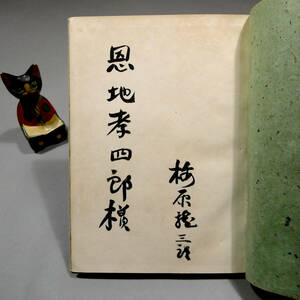 恩地孝四郎様
梅原龍三郎